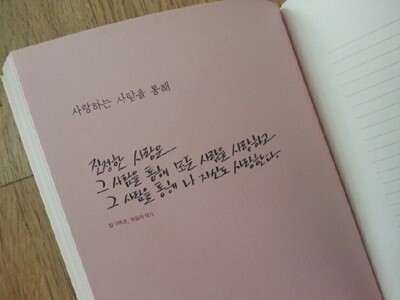 사랑하는 사람을 통해
진정한 사랑은
그 사람을 통해 모든 사람을 사랑하고
그 사람을 통해 나 자신도 사랑한다.